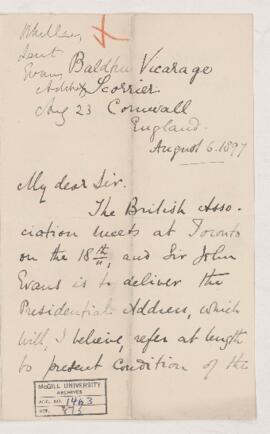 Whillan,
Sent
Evans
Address
Aug 23
Baldhu Vicarage
Scorrier
Cornwall
England.
August 6. 1897
My dear Sir.
The British Asso-
ciation meets at Toronto
on the 18th, and Sir John
Evans is to deliver the
Presidential Address, which
will, I believe, refer at length
to present condition of the
McGILL UNIVERSITY
ARCHIVES
ACC. NO. 1463
REF.